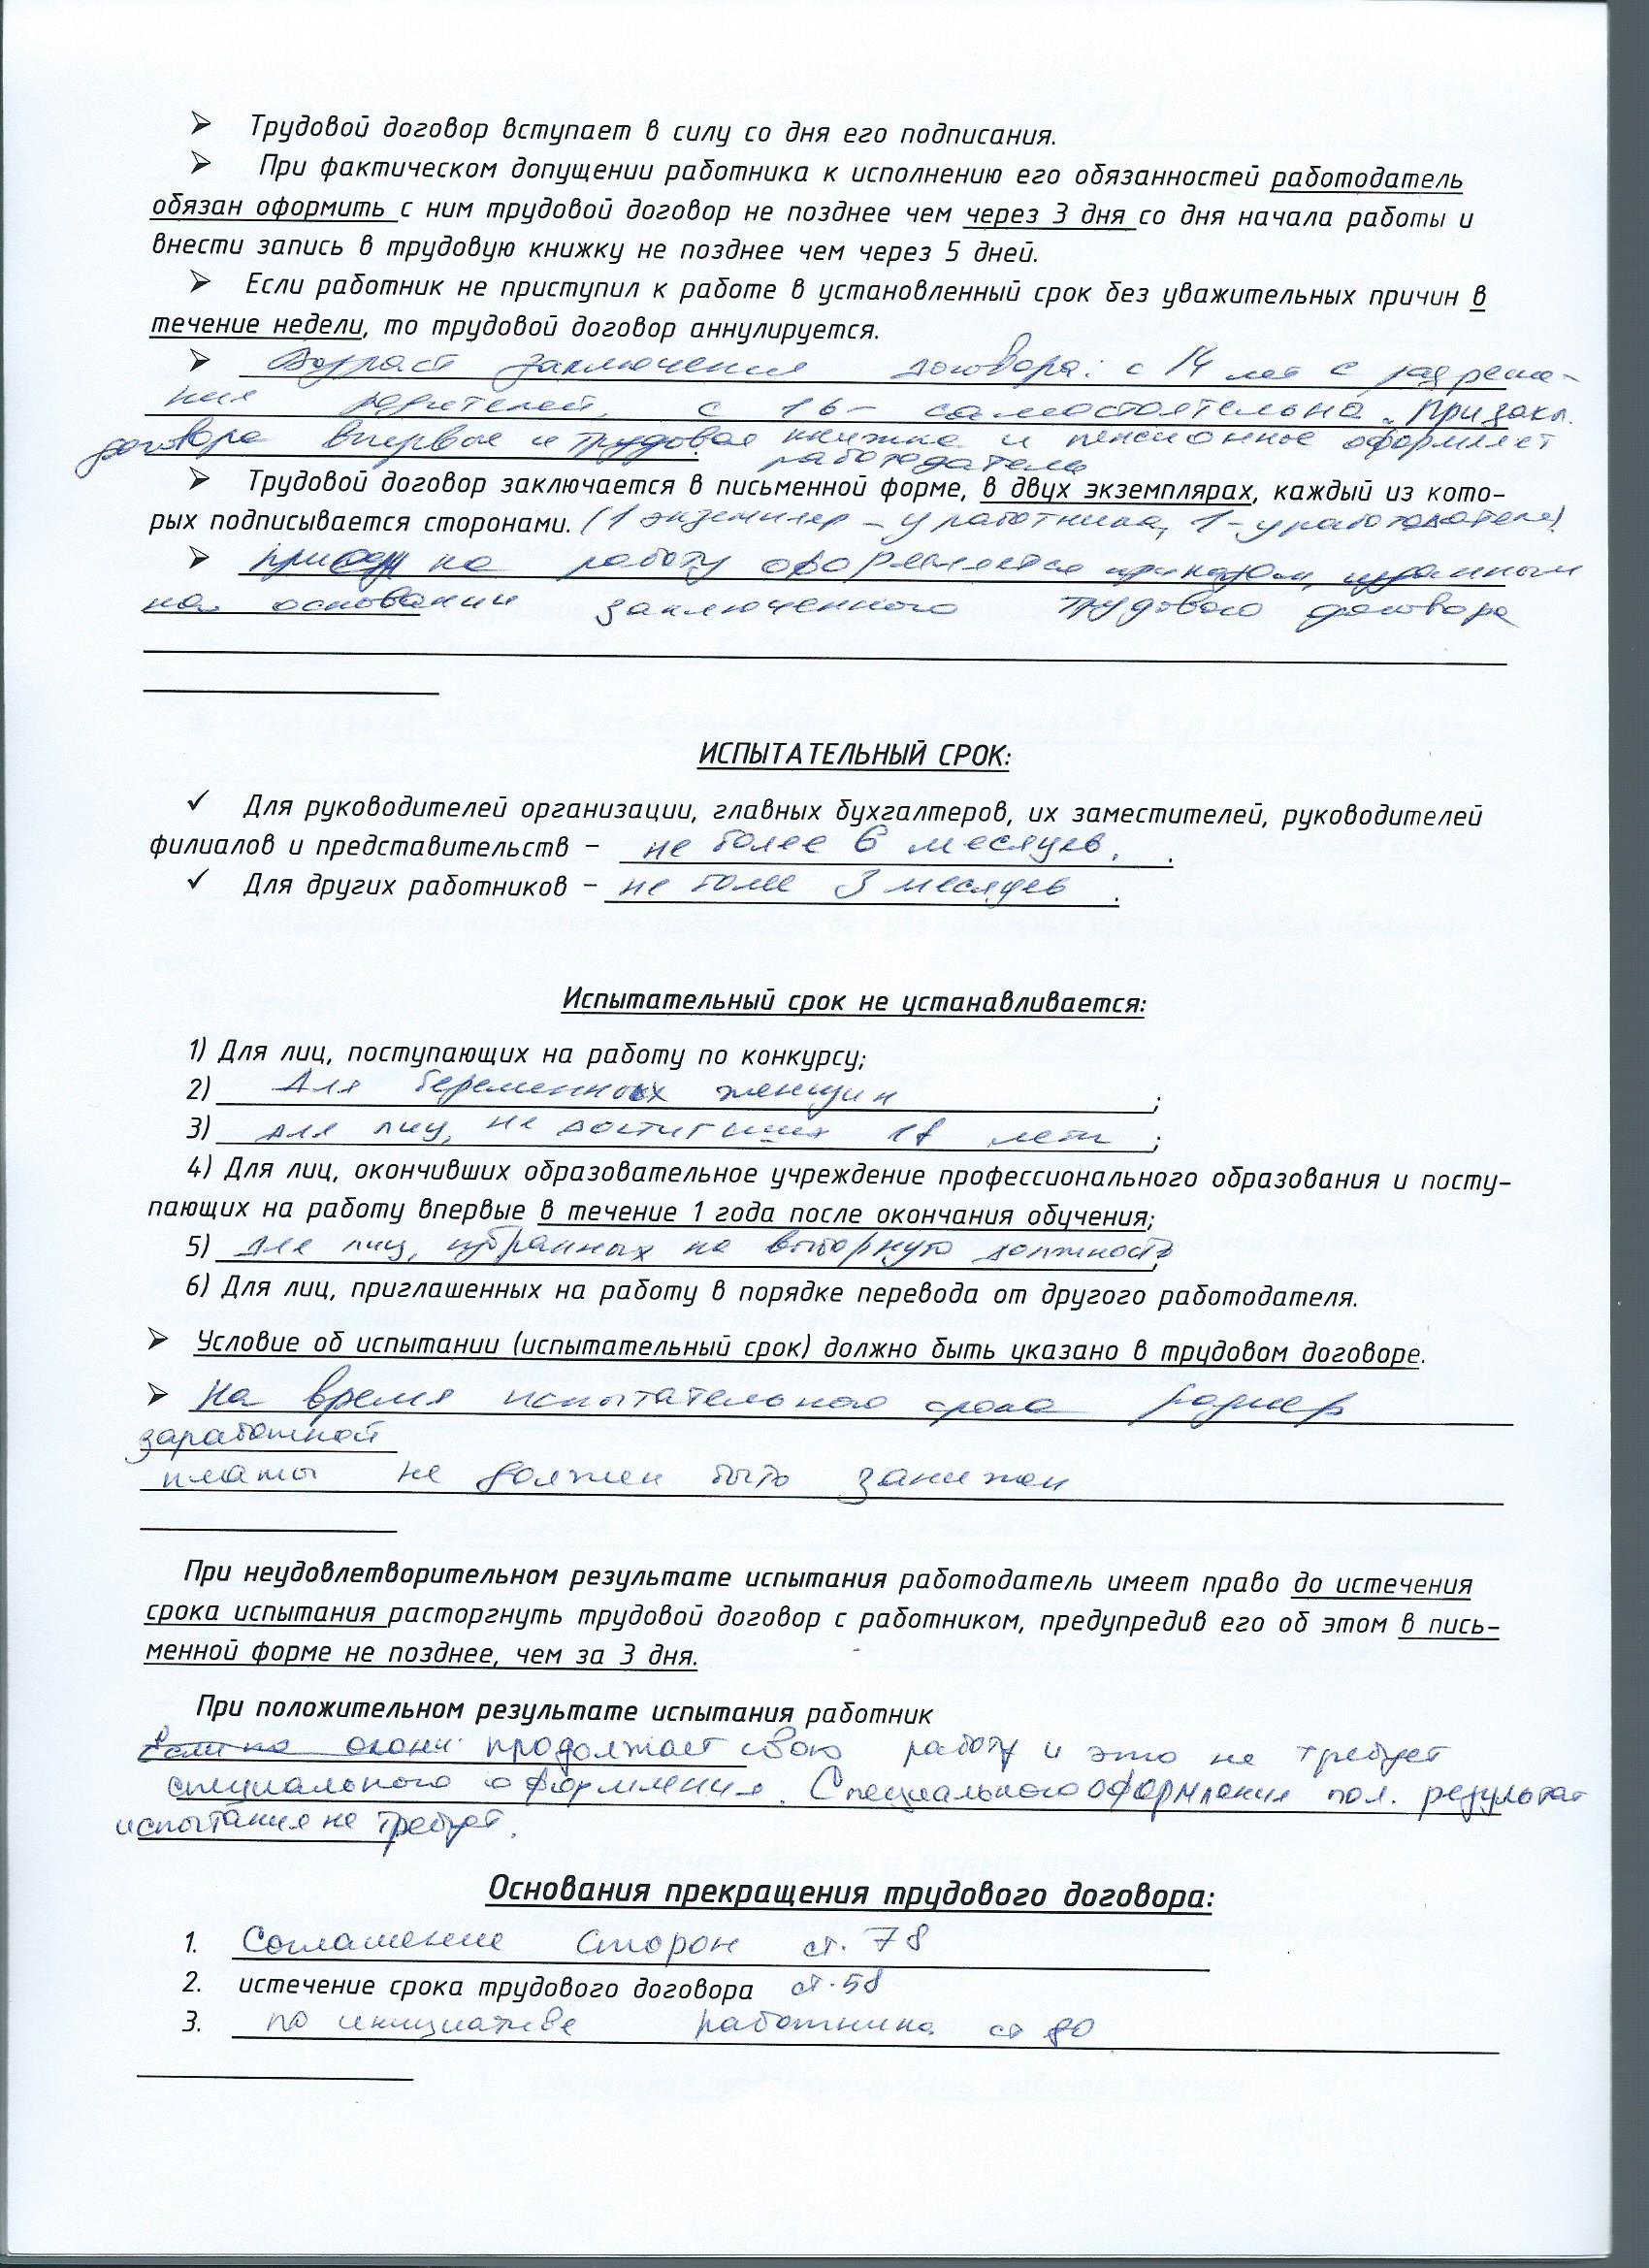 ➢ Трудовой договор вступает в силу со дня его подписания.
➢ При фактическом допущении работника к исполнению его обязанностей работодатель
обязан оформить с ним трудовой договор не позднее чем через 3 дня со дня начала работы и
внести запись в трудовую книжку не позднее чем через 5 дней.
➢ Если работник не приступил к работе в установленный срок без уважительных причин в
течение недели, то трудовой договор аннулируется.
➢ Возраст заключения договора: с 14 лет с разреше-
ния родителей, с 16 - самостоятельно. При закл.
договора впервые и трудовая книжка и пенсионное оформляет
работодатель
➢ Трудовой договор заключается в письменной форме, в двух экземплярах, каждый из кото-
рых подписывается сторонами. (1 экземпляр - у работника, 1 - у работодателя)
➢ прием на работу оформляется приказом, изданным
на основании заключенного трудового договора
ИСПЫТАТЕЛЬНЫЙ СРОК:
✓ Для руководителей организации, главных бухгалтеров, их заместителей, руководителей
филиалов и представительств – не более 6 месяцев.
✓ Для других работников – не более 3 месяцев.
Испытательный срок не устанавливается:
1) Для лиц, поступающих на работу по конкурсу;
2) Для беременных женщин;
3) для лиц, не достигших 18 лет;
4) Для лиц, окончивших образовательное учреждение профессионального образования и посту-
пающих на работу впервые в течение 1 года после окончания обучения;
5) для лиц, избранных на выборную должность;
6) Для лиц, приглашенных на работу в порядке перевода от другого работодателя.
➢ Условие об испытании (испытательный срок) должно быть указано в трудовом договоре.
➢ На время испытательного срока размер
заработной
платы не должен быть занижен
При неудовлетворительном результате испытания работодатель имеет право до истечения
срока испытания расторгнуть трудовой договор с работником, предупредив его об этом в пись-
менной форме не позднее, чем за 3 дня.
При положительном результате испытания работник
продолжает свою работу и это не требует
специального оформления. Специального оформления пол. результат
испытания не требует.
Основания прекращения трудового договора:
1. Соглашение сторон ст. 78
2. истечение срока трудового договора ст. 58
3. по инициативе работника ст 80